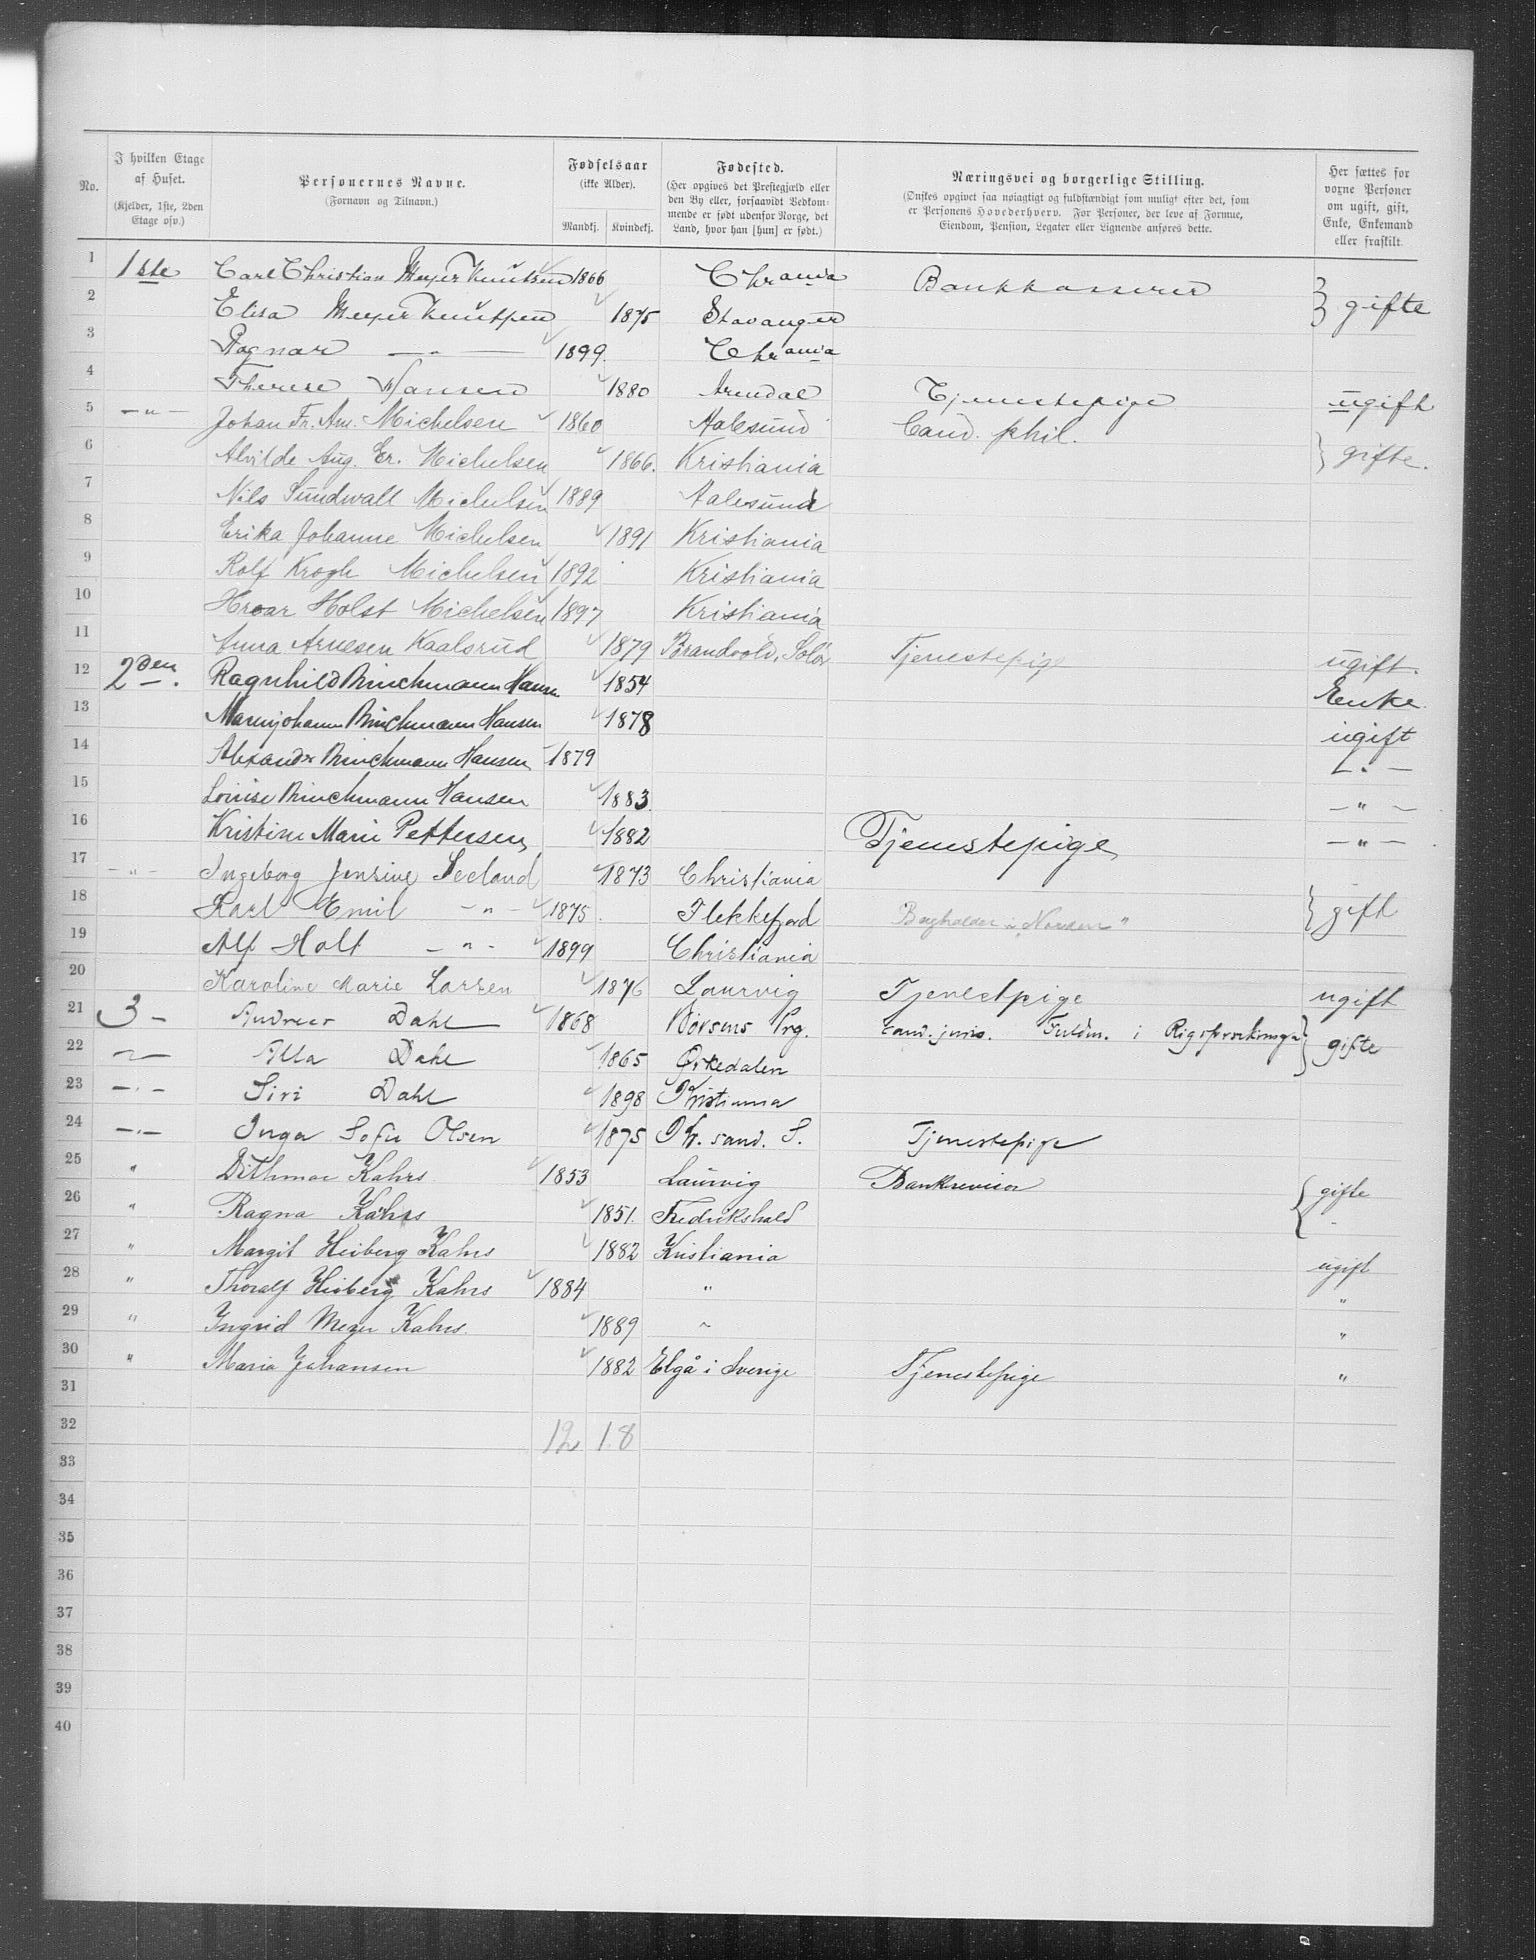 No. | I hvilken Etage af Huset. (Kjelder, 1ste, 2den Etage osv.) | Personernes Navne. (Fornavn og Tilnavn.) | Fødselsaar (ikke Alder). Mandkj. Kvindekj. | Fødested. (Her opgives det Prestegjæld eller den By eller, forsaavidt Vedkommende er født udenfor Norge, det Land, hvor han [hun] er født.) | Næringsvei og borgerlige Stilling. (Ønskes opgivet saa nøiagtigt og fuldstændigt som muligt efter det, som er Personens Hovederhverv. For Personer, der leve af Formue, Eiendom, Pension, Legater eller Lignende anføres dette.) | Her sættes for voxne Personer om ugift, gift, Enke, Enkemand eller fraskilt.
1 1ste Carl Christian Meyer Knutsen 1866 Chrania Bankkasserer } gifte
2 Elisa Meyer Knutsen 1875 Stavanger
3 Ragnar — „ — 1899. Chrania
4 Therese Hansen 1880 Arendal Tjenestepige ugift
5 — „ — Johan Fr. Am. Michelsen 1860 Aalesund Cand. phil. } gifte.
6 Alvilde Aug. Er. Michelsen 1866. Kristiania
7 Nils Sundwall Michelsen 1889 Aalesund
8 Erika Johanne Michelsen 1891 Kristiania
9 Rolf Krogh Michelsen 1892 Kristiania
10 Hroar Holst Michelsen 1897 Kristiania
11 Anna Arnesen Kaalsrud 1879 Brandvold, Solør Tjenestepige ugift.
12 2den. Ragnhild Brinchmann Hansen 1854 Enke
13 Marenjohanne Brinchmann Hansen 1878 ugift
14 Alexander Brinchmann Hansen 1879 — „ —
15 Louise Brinchmann Hansen 1883. — „ —
16 Kristine Marie Pettersen 1882 Tjenestepige — „ —
17 — „ — Ingeborg Jensine Seeland 1873 Christiania } gift
18 Karl Emil — „ — 1875. Flekkefjord Bogholder i „Norden"
19 Alf Holt — „ — 1899 Christiania
20 Karoline Marie Larsen 1876 Laurvig Tjenestpige ugift
21 3 — Andreas Dahl 1868 Børsens Prg. cand. juris. Fuldm. i } gifte
22 — „ — Dahl 1865 Ørkedalen
23 — „ — Siri Dahl 1898 Kristiania
24 — „ — Inga Sofie Olsen 1875 Chr. sand. S. Tjenestepige
25 „ Dithmar Kahrs 1853 Laurvig Bankrevisor { gifte
26 „ Ragna Kahrs 1851. Fredrikshald „
27 „ Margit Heiberg Kahrs 1882 Kristiania ugift
28 „ Thoralf Heiberg Kahrs 1884 „ „
29 „ Ingrid Meyer Kahrs. 1889 „ „
30 „ Maria Johansen 1882 Elgå i Sverige Tjenestepige „
31
32 12 18
33
34
35
36
37
38
39
40